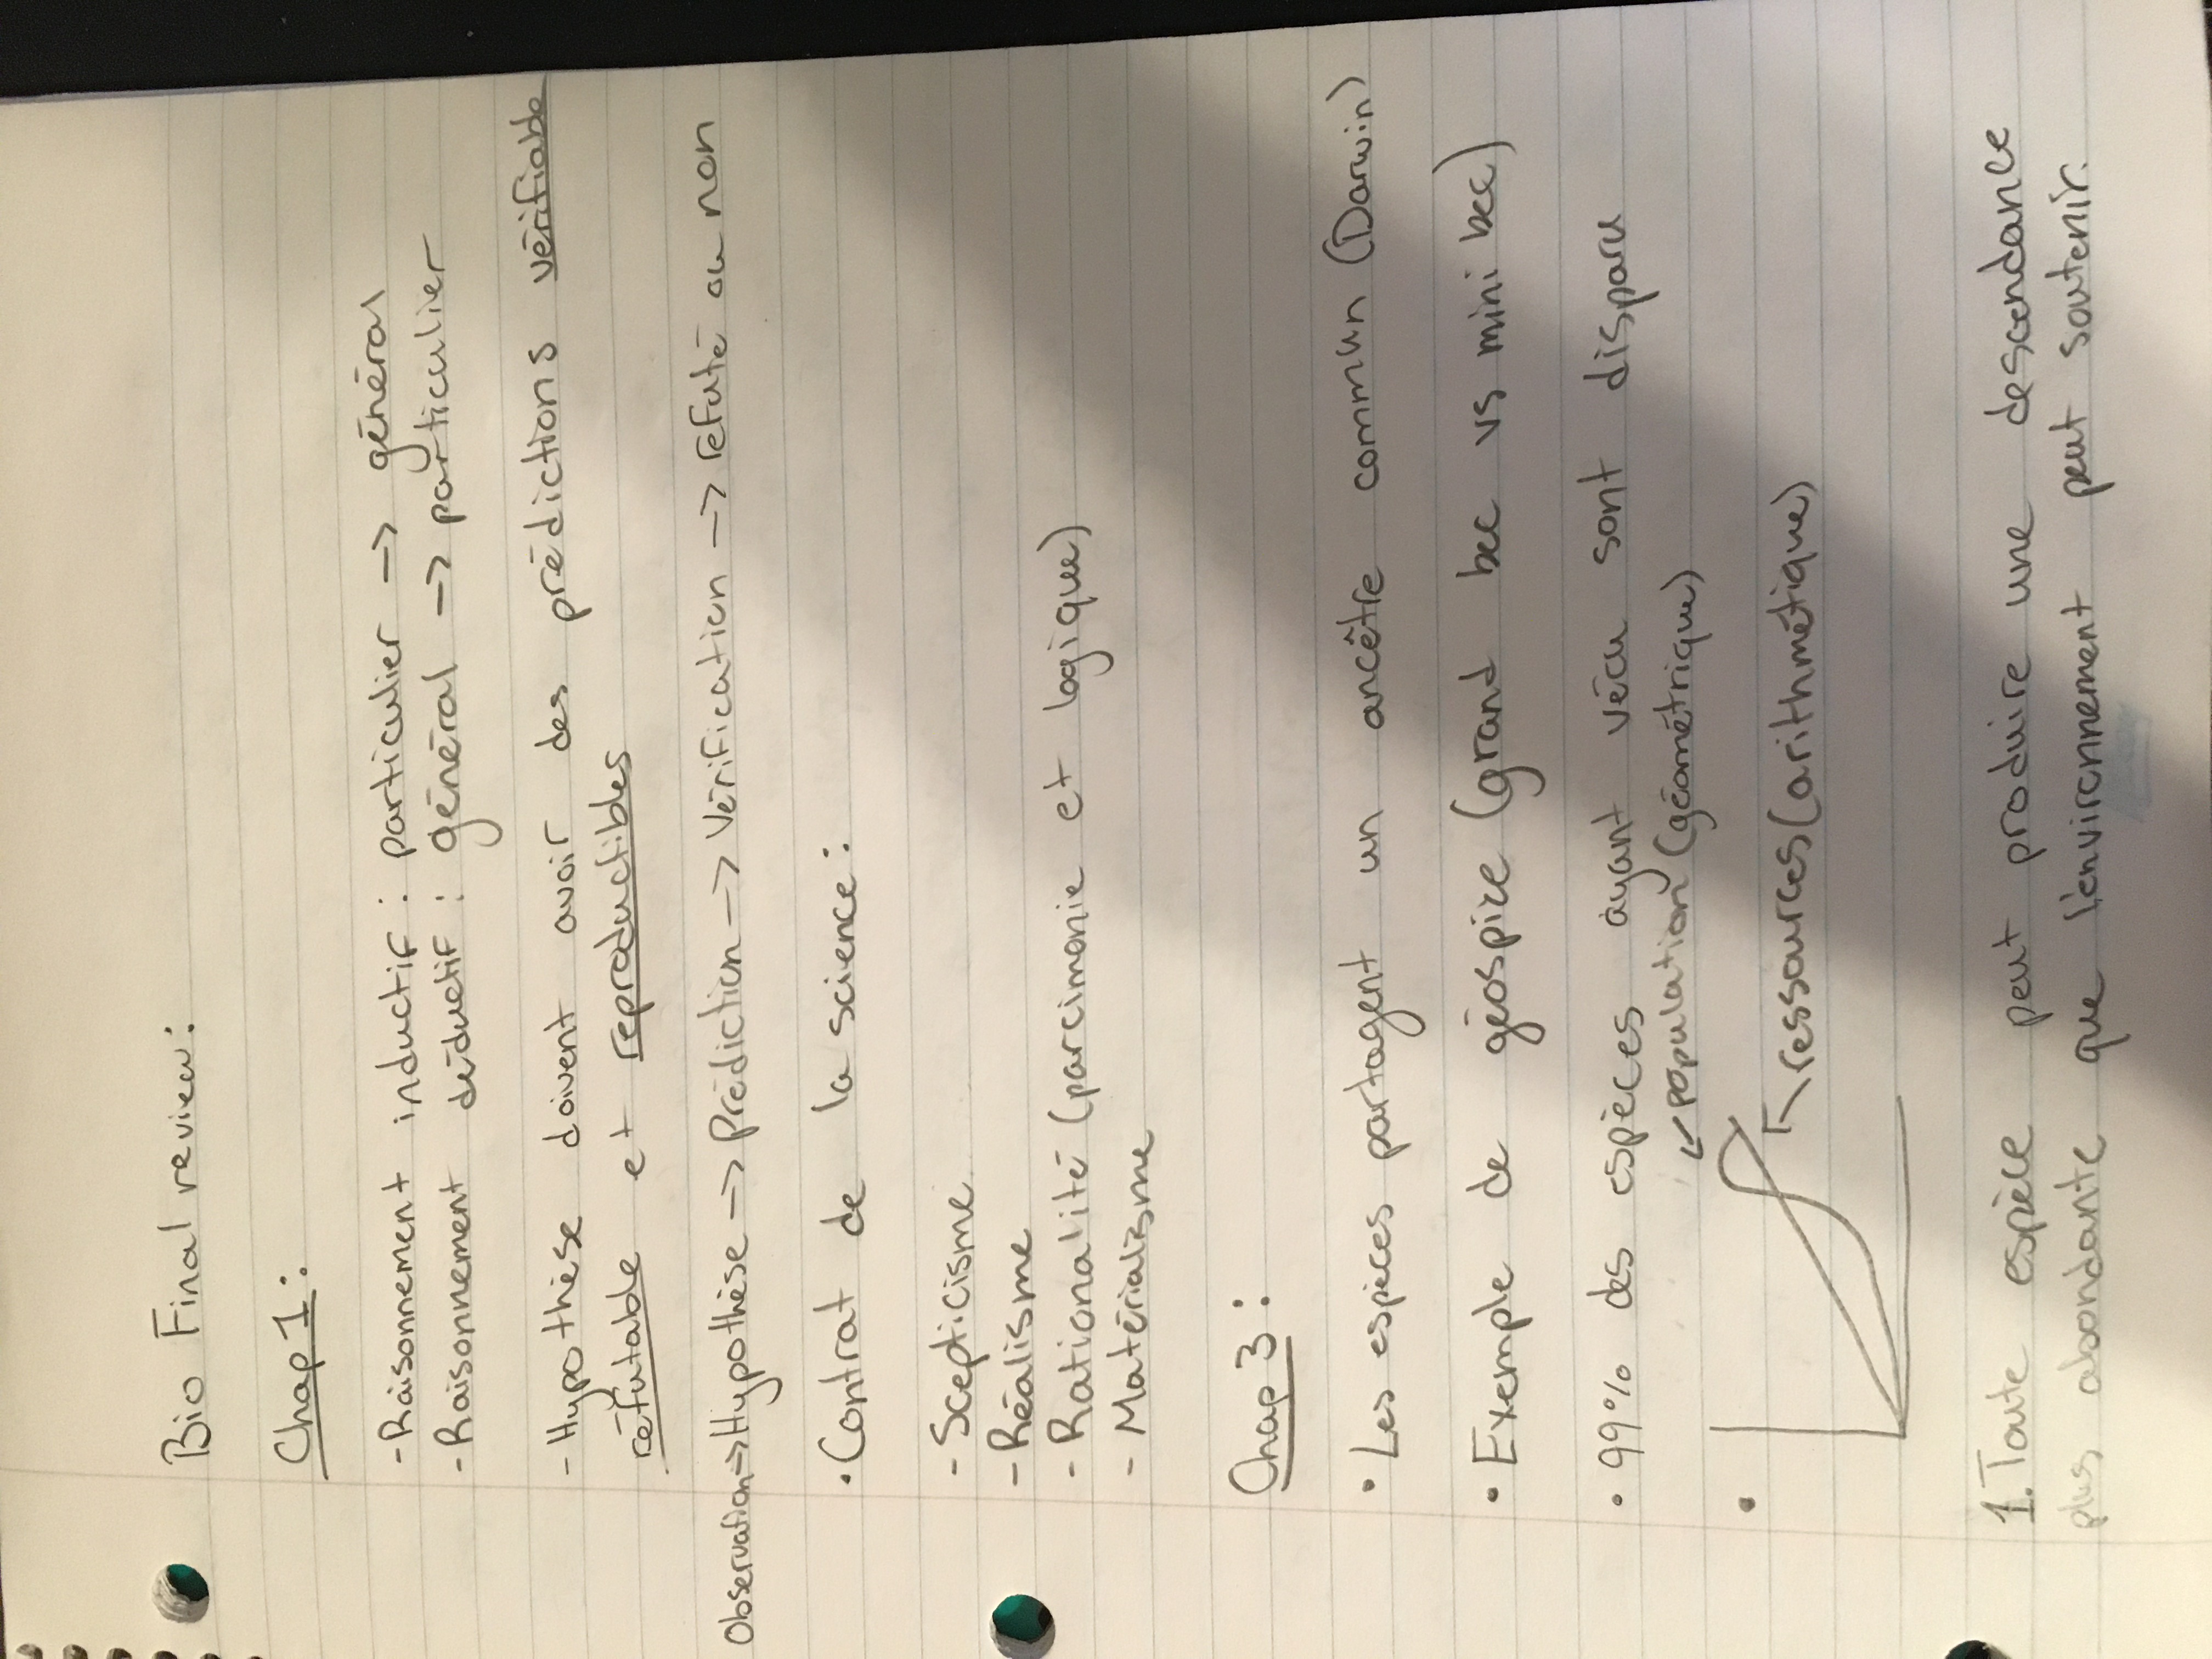 Bio Final review:
Chap 1:
- Raisonnement inductif : particulier -> général
- Raisonnement déductif : général -> particulier
- Hypothèse doivent avoir des prédictions vérifiable
réfutable et reproductibles
Observation -> Hypothèse -> Prédiction -> Vérification -> réfuté ou non
• Contrat de la science :
- Scepticisme
- Réalisme
- Rationalité (parcimonie et logique)
- Matérialisme
Chap 3 :
• Les espèces partagent un ancêtre commun (Darwin)
• Exemple de géospize (grand bec vs mini bec)
• 99% des espèces ayant vécu sont disparu
population (géométrique)
ressources (arithmétique)
1. Toute espèce peut produire une descendance
plus abondante que l'environnement peut soutenir.